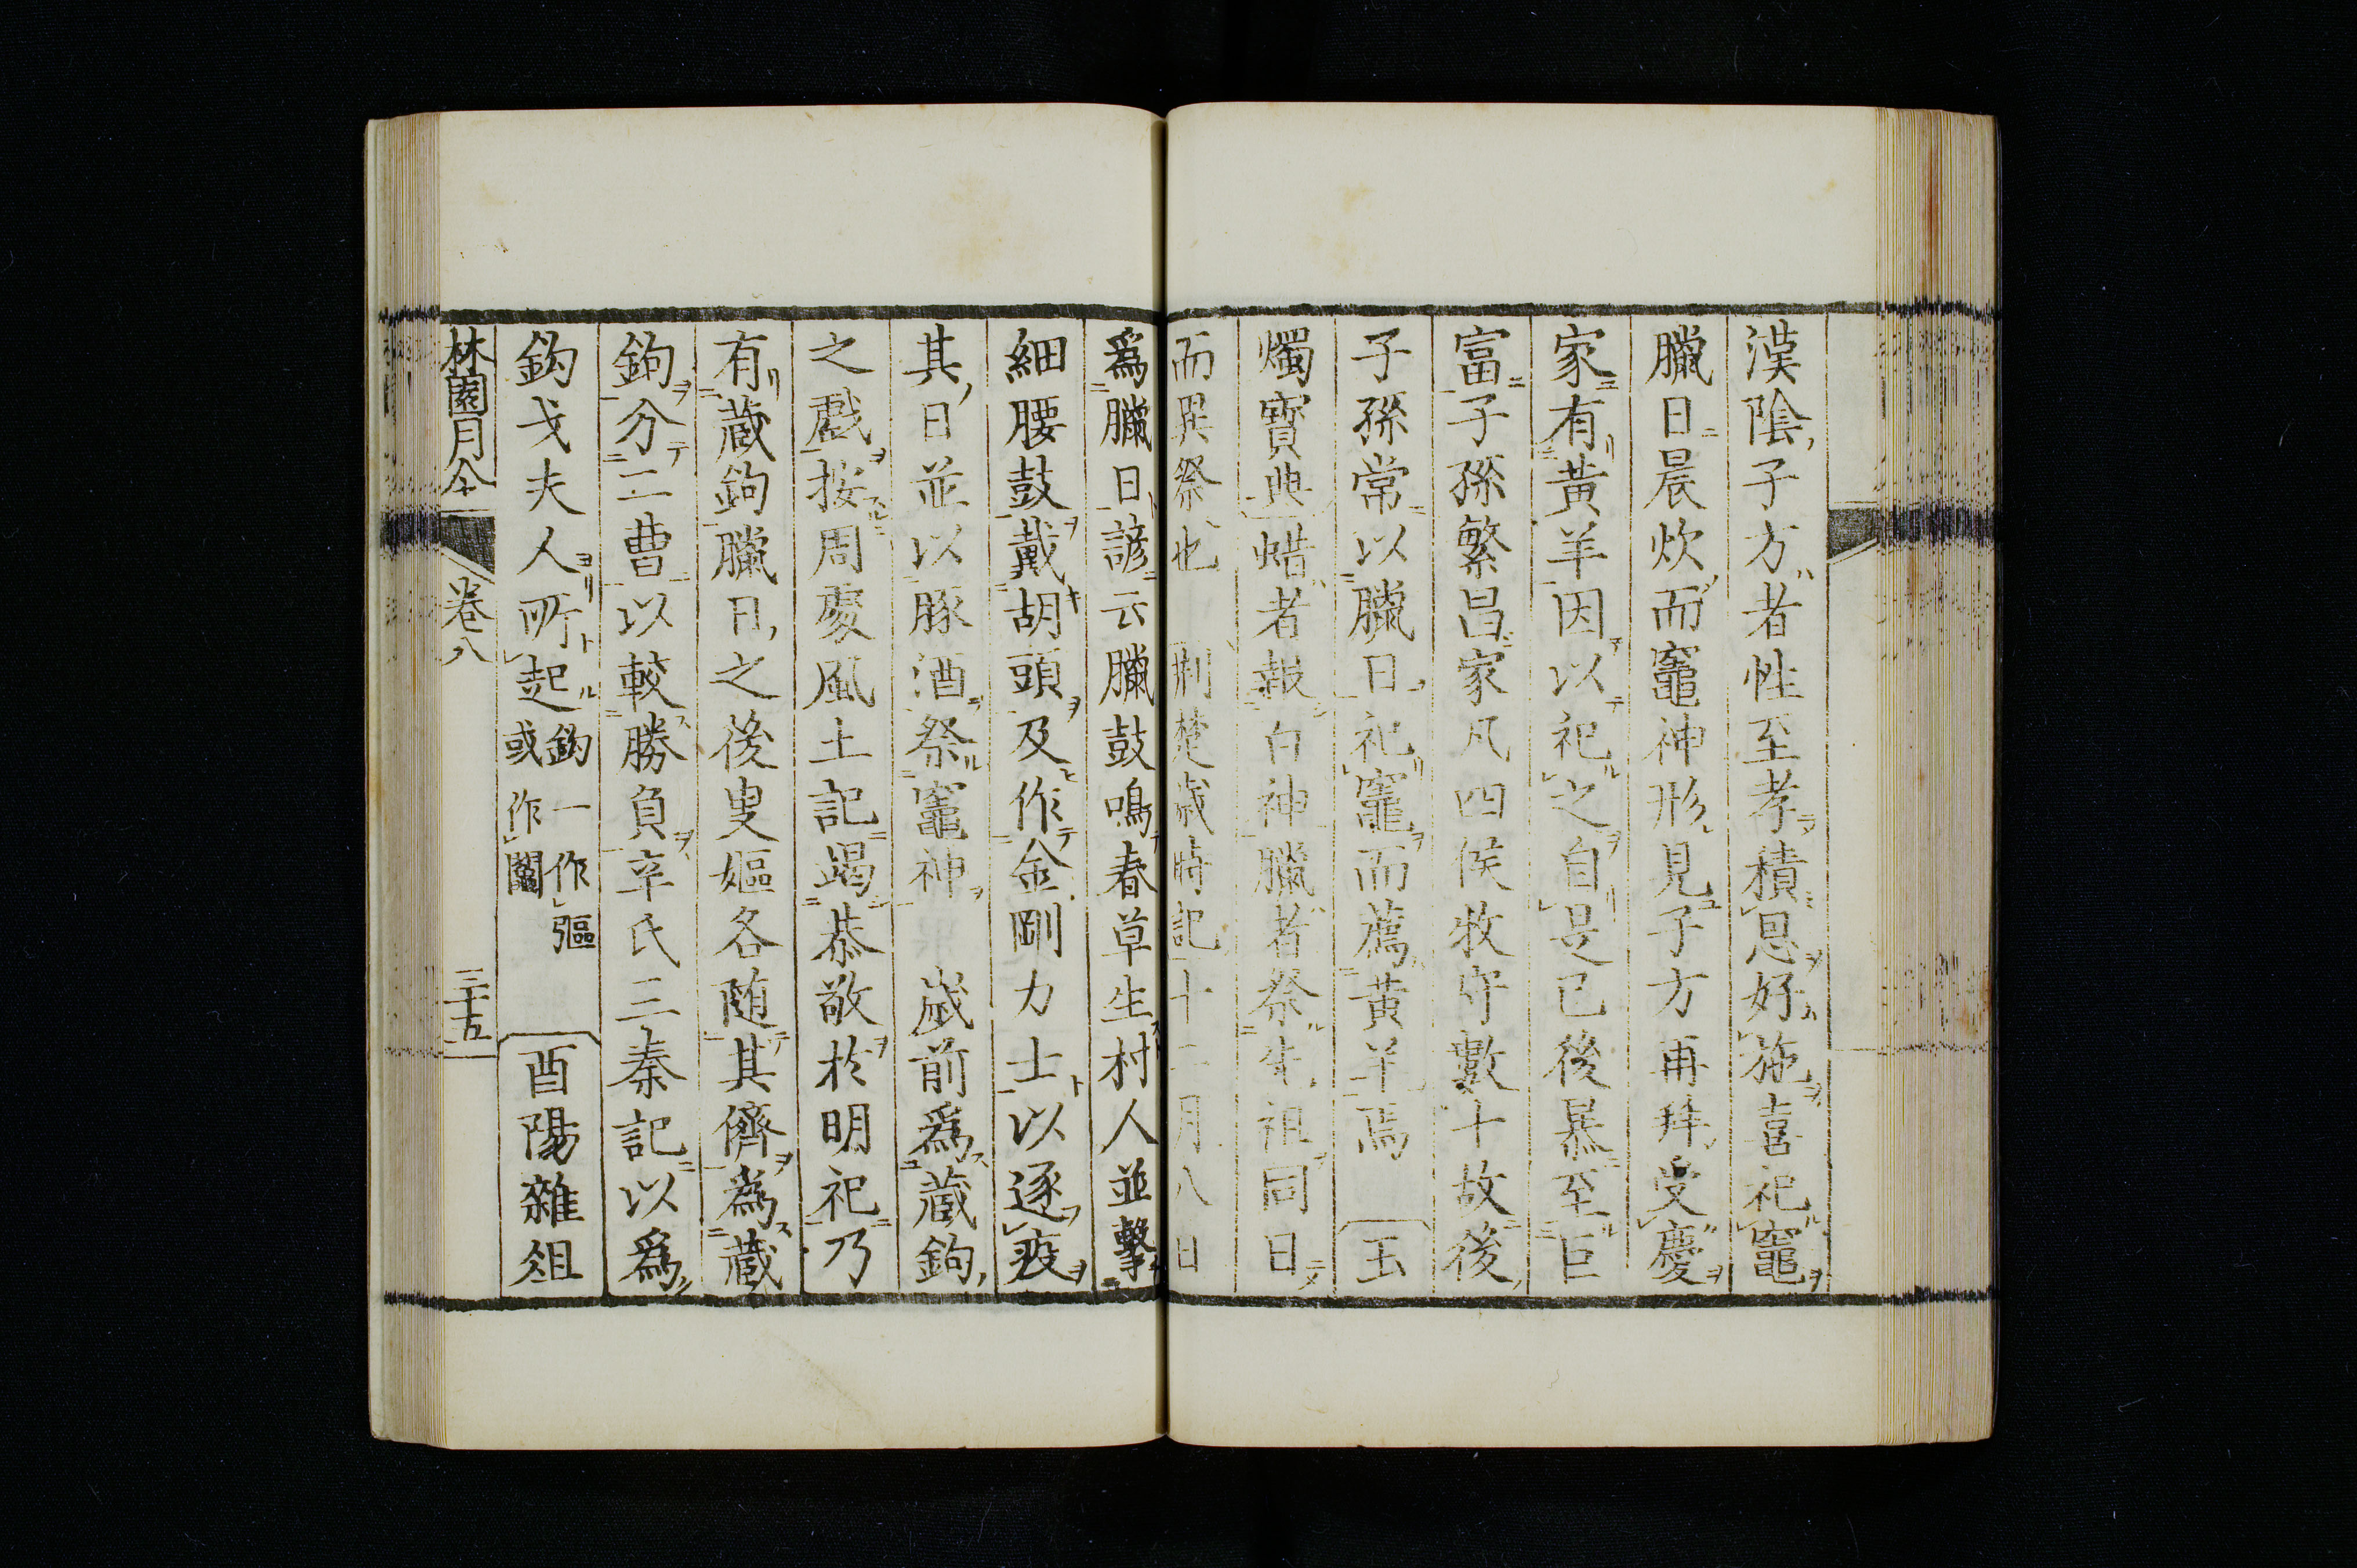 漢陰子方者性至孝積恩好施喜祀竈
臘日晨炊而竈神形見子方再拜受慶
家有黃羊因以祀之自是已後暴至巨
富子孫繁昌家凡四侯牧守數十故後
子孫常以臘日祀竈而薦黃羊焉 玉
燭寶典蜡者報百神臘者祭先祖同日
而異祭也 荆楚歲時記十二月八日
爲臘日諺云臘鼓鳴春草生村人並擊
細腰鼓戴胡頭及作金剛力士以逐疫
其日並以豚酒祭竈神 歲前爲蔵鉤
之戲按周處風土記竭恭敬於明祀乃
有蔵鉤臘日之後叟嫗各随其儕為蔵
鉤分二曹以較勝負辛氏三秦記以爲
鈎弋夫人所起 鈎一作彄
或作䦰 酉陽雜俎
林園月令 卷八 三十五